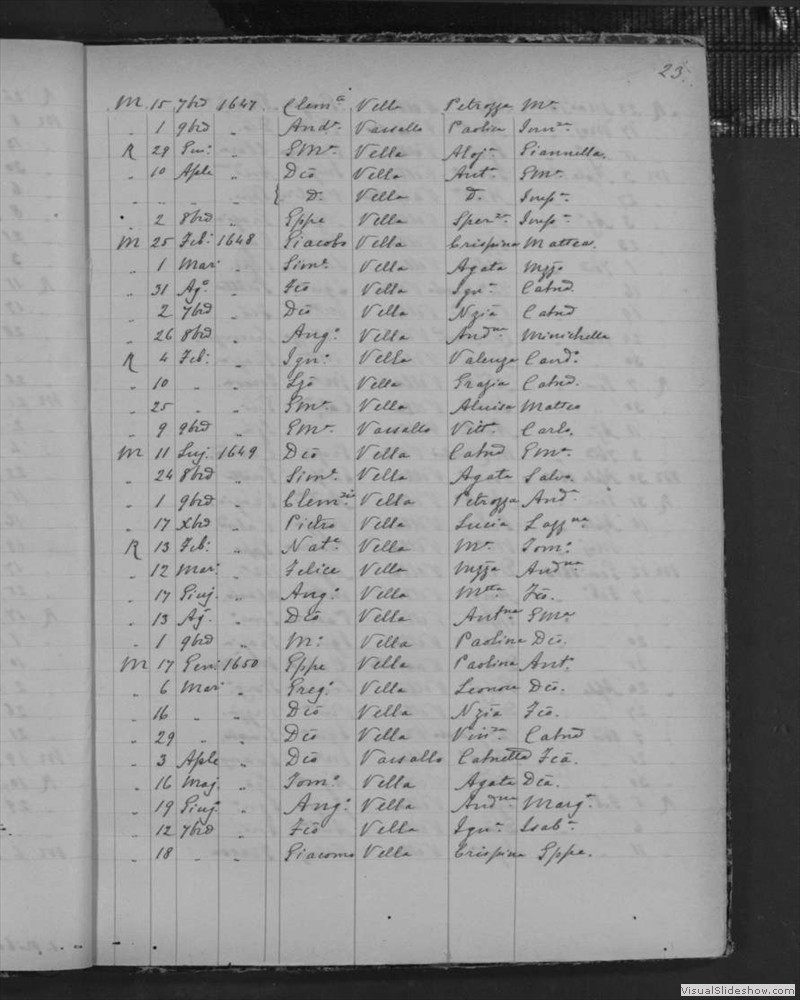 23.
M 15 7bd 1647 Clem.a Vella Petrozza M.a
„ 1 9bd „ And.a Vassallo Paolica
R 29 Gen: „ GM.a Vella Aloj.a Giannella.
„ 10 Aple „ Dco Vella Ant.a GM.a
„ „ „ „ { D. Vella D.
„ 2 8bd „ Gppe Vella Sper.za
M 25 Feb: 1648 Giacobo Vella Crispina Mattea.
„ 1 Mar „ Sim.e Vella Agata
„ 31 Ag.o „ Fco Vella Ign.a Catnd.
„ 2 7bd „ Dco Vella Nzia Catnd
„ 26 8bd „ Ang.o Vella And.na Minichella
R 4 Feb: „ Ign.o Vella Valenza Cand.a
„ 10 „ „ Vella Grazia Catnd.
„ 25 „ „ GM.a Vella Aluisa Mattea
„ 9 9bd „ GM.a Vassallo Vitt.a Carla.
M 11 Luj. 1649 Dco Vella Catnd GM.a
„ 24 8bd „ Sim.e Vella Agata Salva.
„ 1 9bd „ Clem. Vella Petrozza And.a
„ 17 Xbd „ Pietro Vella Lucia Lazz.na
R 13 Feb: „ Nat.e Vella M.a Tom.a
„ 12 Mar: „ Felice Vella And.na
„ 17 Giuj. „ Ang.o Vella M.tta Fca.
„ 13 Ag. „ Dco Vella Ant.na GM.a
„ 1 9bd „ M.o Vella Paolina Dca.
M 17 Gen: 1650 Gppe Vella Paolina Ant.a
„ 6 Mar „ Greg.o Vella Leonora Dca.
„ 16 „ „ Dco Vella Nzia Fca.
„ 29 „ „ Dco Vella Vin.za Catnd
„ 3 Aple „ Dco Vassallo Catnetta Fca.
„ 16 Maj. „ Tom.o Vella Agata Dca.
„ 19 Giuj. „ Ang.o Vella And.na Marg.a
„ 12 7bd „ Fco Vella Ign.a Isab.a
„ 18 „ „ Giacomo Vella Crispina Gppa.
VisualSlideshow.com